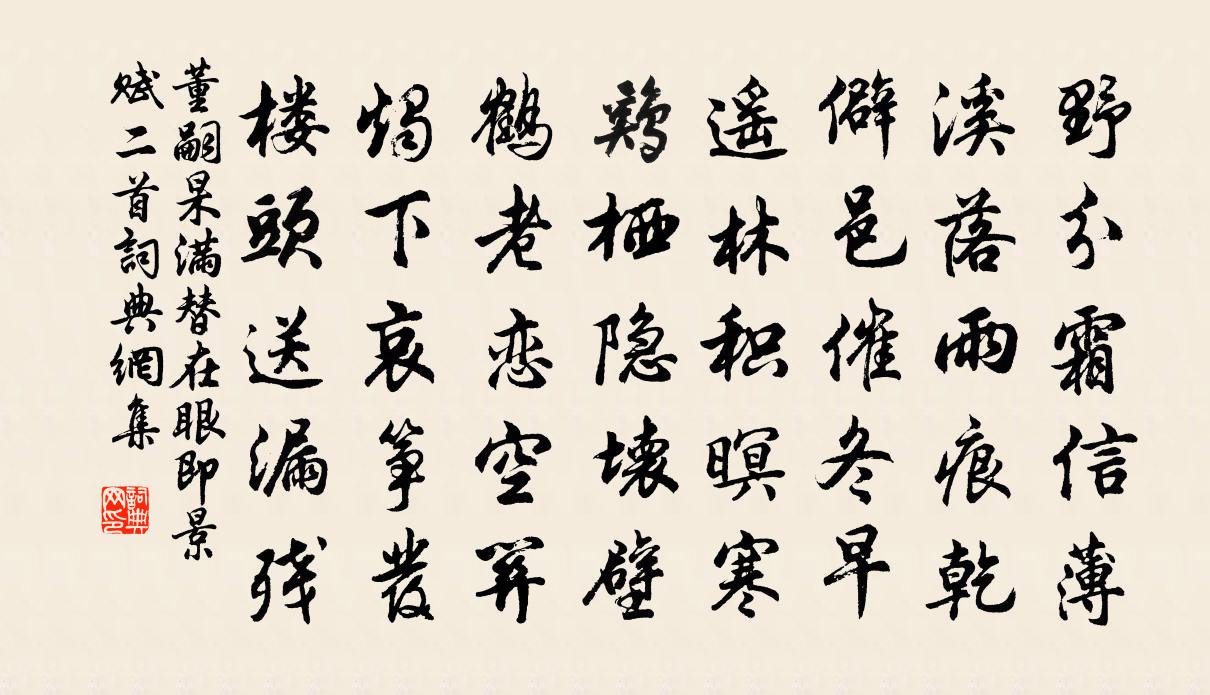 野分霜信薄
溪落雨痕乾
僻邑催冬早
遥林积暝寒
鷄栖隐壊壁
鶴老恋空
燭下哀筝發
楼頭送漏残
董嗣杲满替在眼即景
赋二首詞典網集
詞典网印